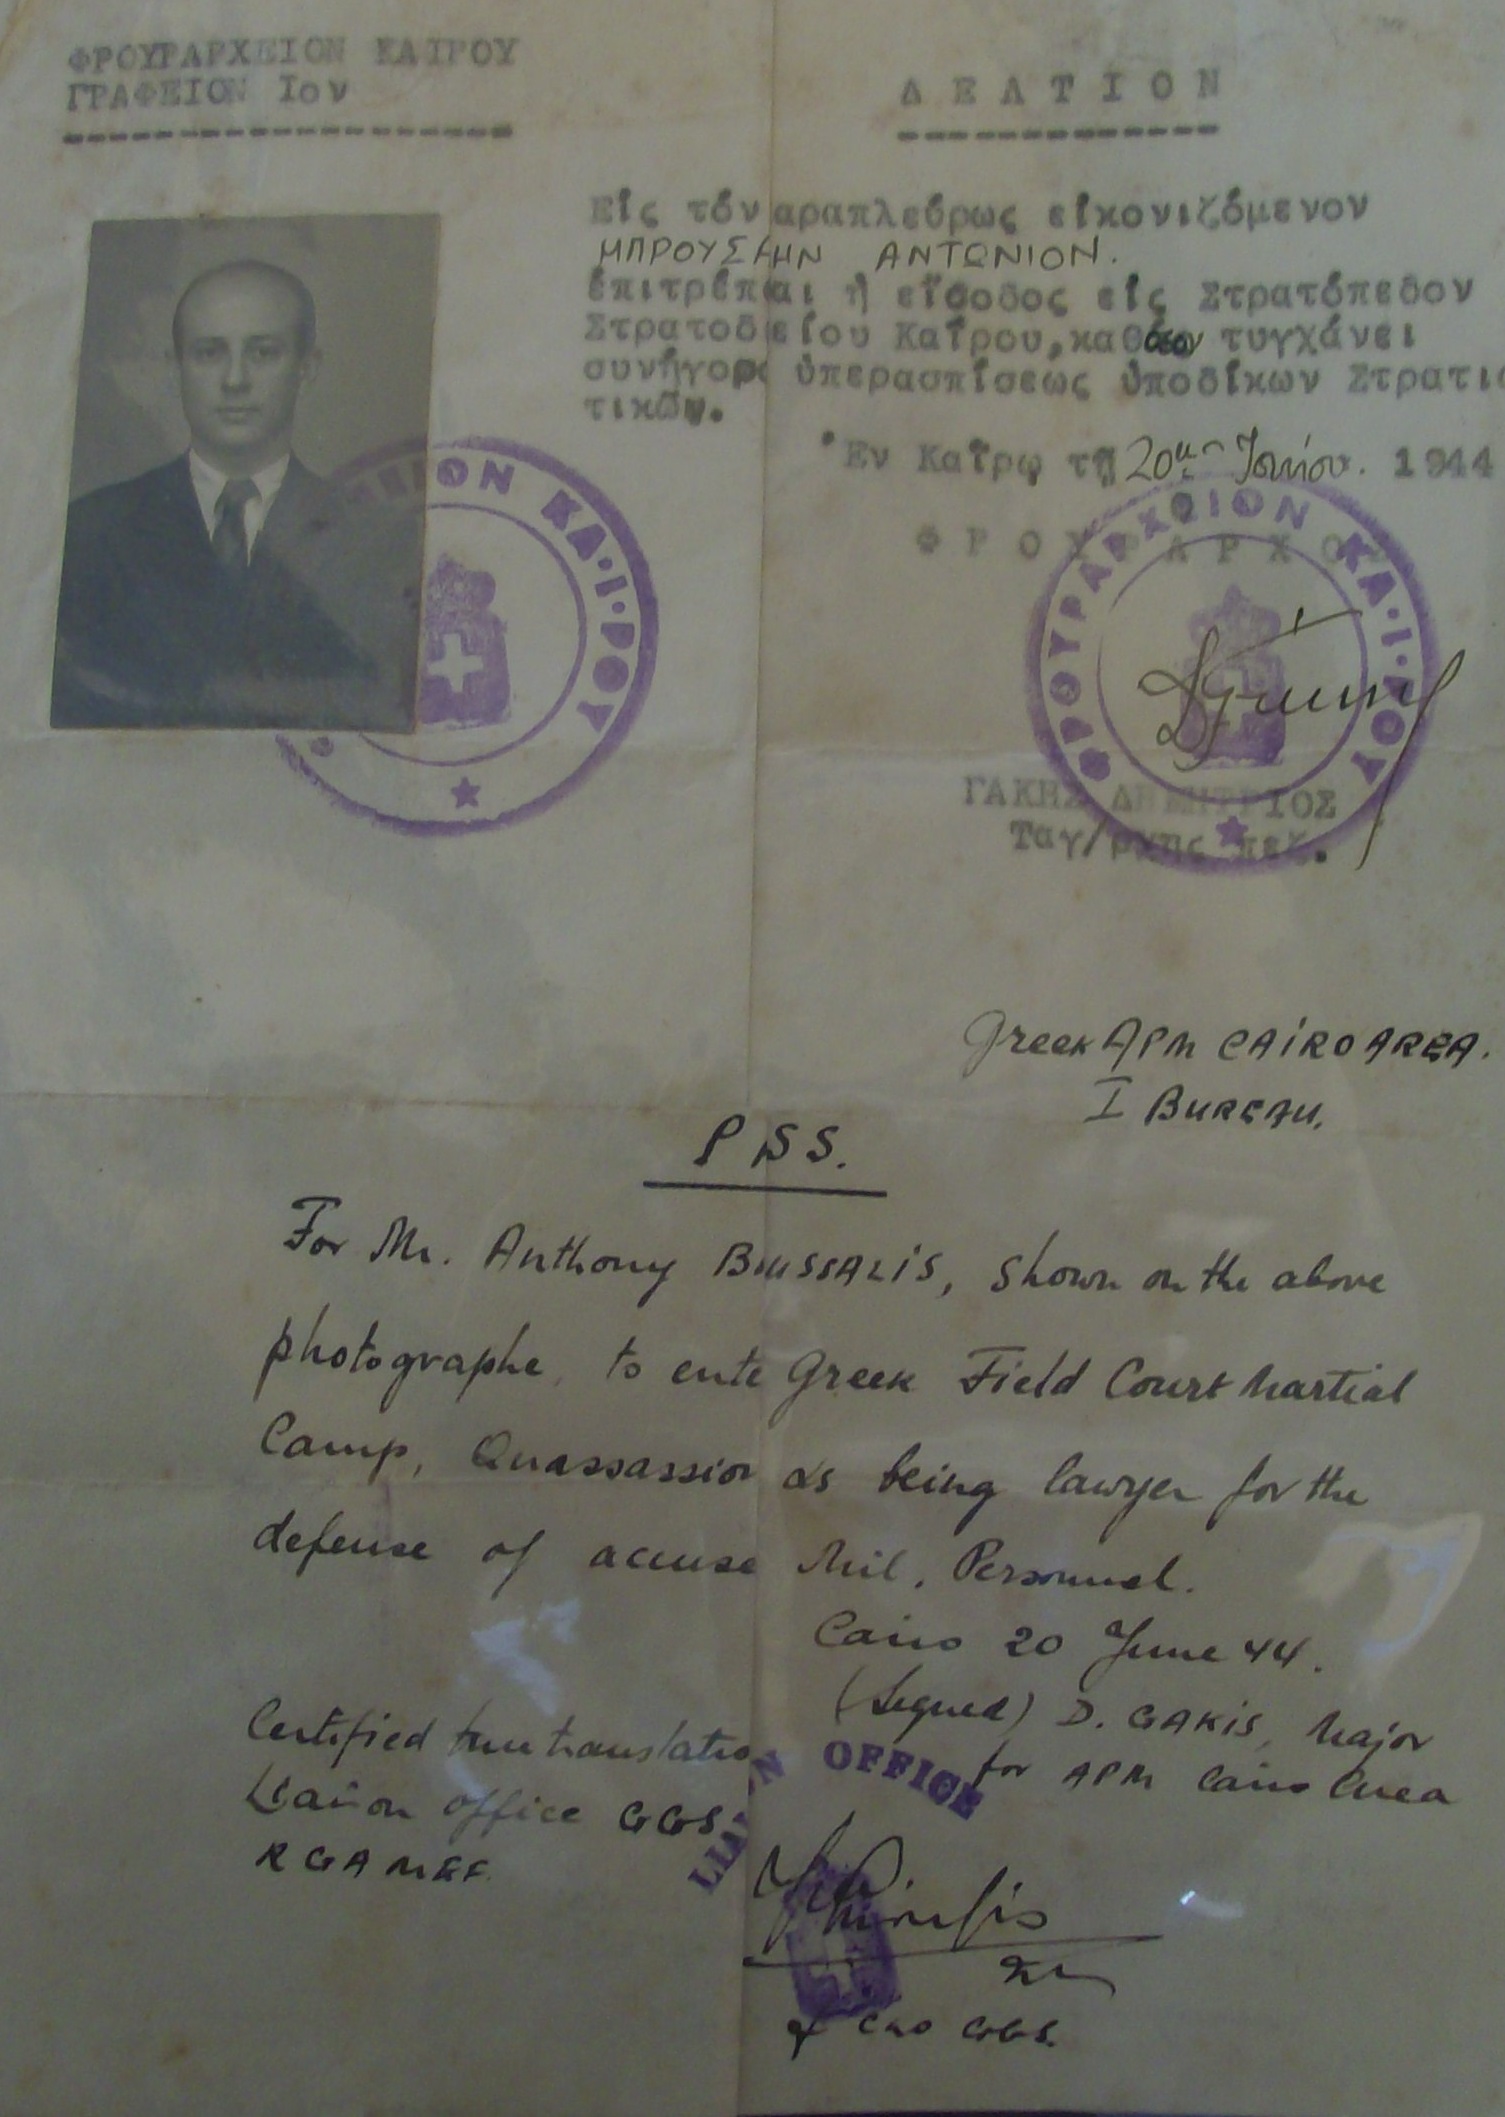 ΦΡΟΥΡΑΡΧΕΙΟΝ ΚΑΙΡΟΥ
ΓΡΑΦΕΙΟΝ Ιον
ΔΕΛΤΙΟΝ
Εἰς τόν αραπλεύρως εἰκονιζόμενον
ΜΠΡΟΥΣΑΛΗΝ ΑΝΤΩΝΙΟΝ.
ἐπιτρέπται ἡ εἴσοδος εἰς Στρατόπεδον
Στρατοδείου Καΐρου, καθόσον τυγχάνει
συνήγορ ὑπερασπίσεως ὑποδίκων Στρατιω
τικῶν.
Ἐν Καΐρῳ τῇ 20ῃ Ἰουνίου. 1944
ΦΡΟΥΡΑΡΧΟΣ
ΦΡΟΥΡΑΡΧΕΙΟΝ ΚΑ·Ι·ΡΟΥ
ΦΡΟΥΡΑΡΧΕΙΟΝ ΚΑ·Ι·ΡΟΥ
ΓΑΚΗΣ ΔΗΜΗΤΡΙΟΣ
Ταγ/ρχης πεζ.
Greek APM CAIRO AREA.
I BUREAU.
PASS.
For Mr. Anthony BRUSSALIS, shown on the above
photographe, to ente Greek Field Court Martial
Camp, Quassassin as being lawyer for the
defense of accuse Mil. Personnel.
Cairo 20 June 44.
(Segned) D. GAKIS, Major
for APM Cairo Area
Certified true translatio
Liaison office GGS
RGAMEF.
LIAISON OFFICE
CLO GGS.